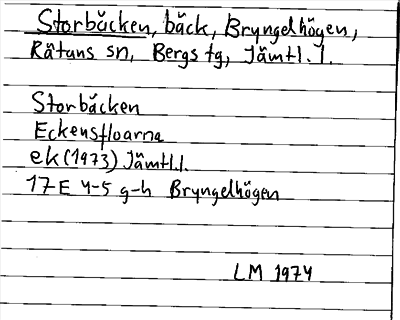 Storbäcken, bäck, Bryngelhögen,
Rätans sn, Bergs tg, Jämtl. l.
Storbäcken
Eckensfloarna
ek (1973) Jämtl.l.
17E 4-5 g-h Bryngelhögen
LM 1974